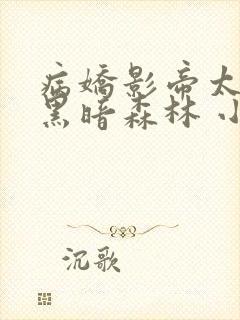 病嬌影帝太
黑暗森林 小
沉歌